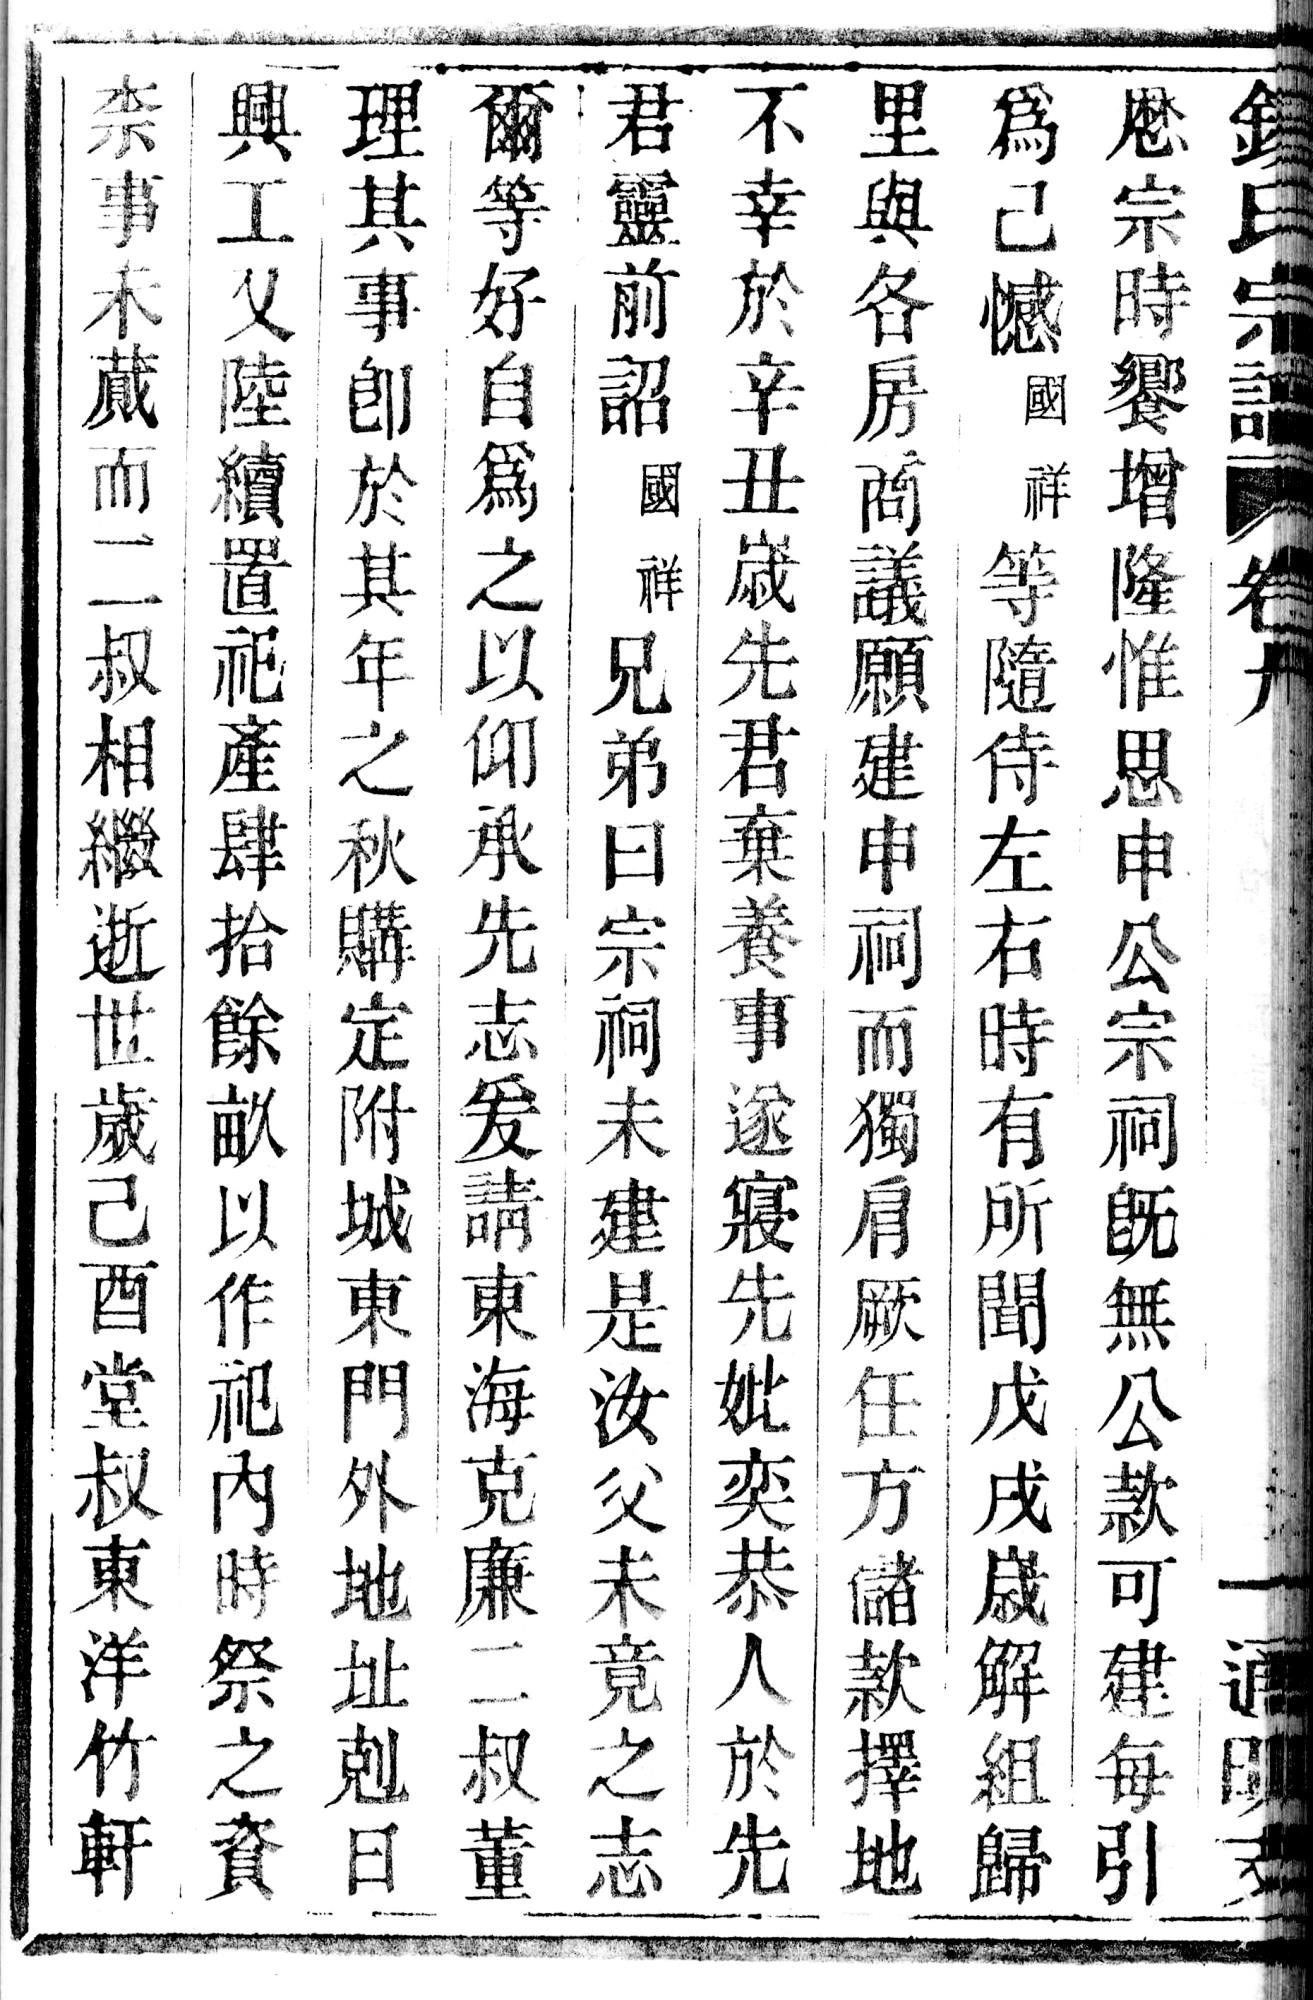 氏宗譜 卷九 一
懋宗時饗增隆惟思申公宗祠旣無公款可建每引
爲己憾國祥等隨侍左右時有所聞戊戌歲解組歸
里與各房商議願建申祠而獨肩厥任方儲款擇地
不幸於辛丑歲先君棄養事遂寢先妣奕恭人於先
君靈前詔國祥兄弟曰宗祠未建是汝父未竟之志
爾等好自爲之以仰承先志爰請東海克廉二叔董
理其事卽於其年之秋購定附城東門外地址剋日
興工又陸續置祀產肆拾餘畝以作祀內時祭之資
柰事未蕆而二叔相繼逝世歲己酉堂叔東洋竹軒